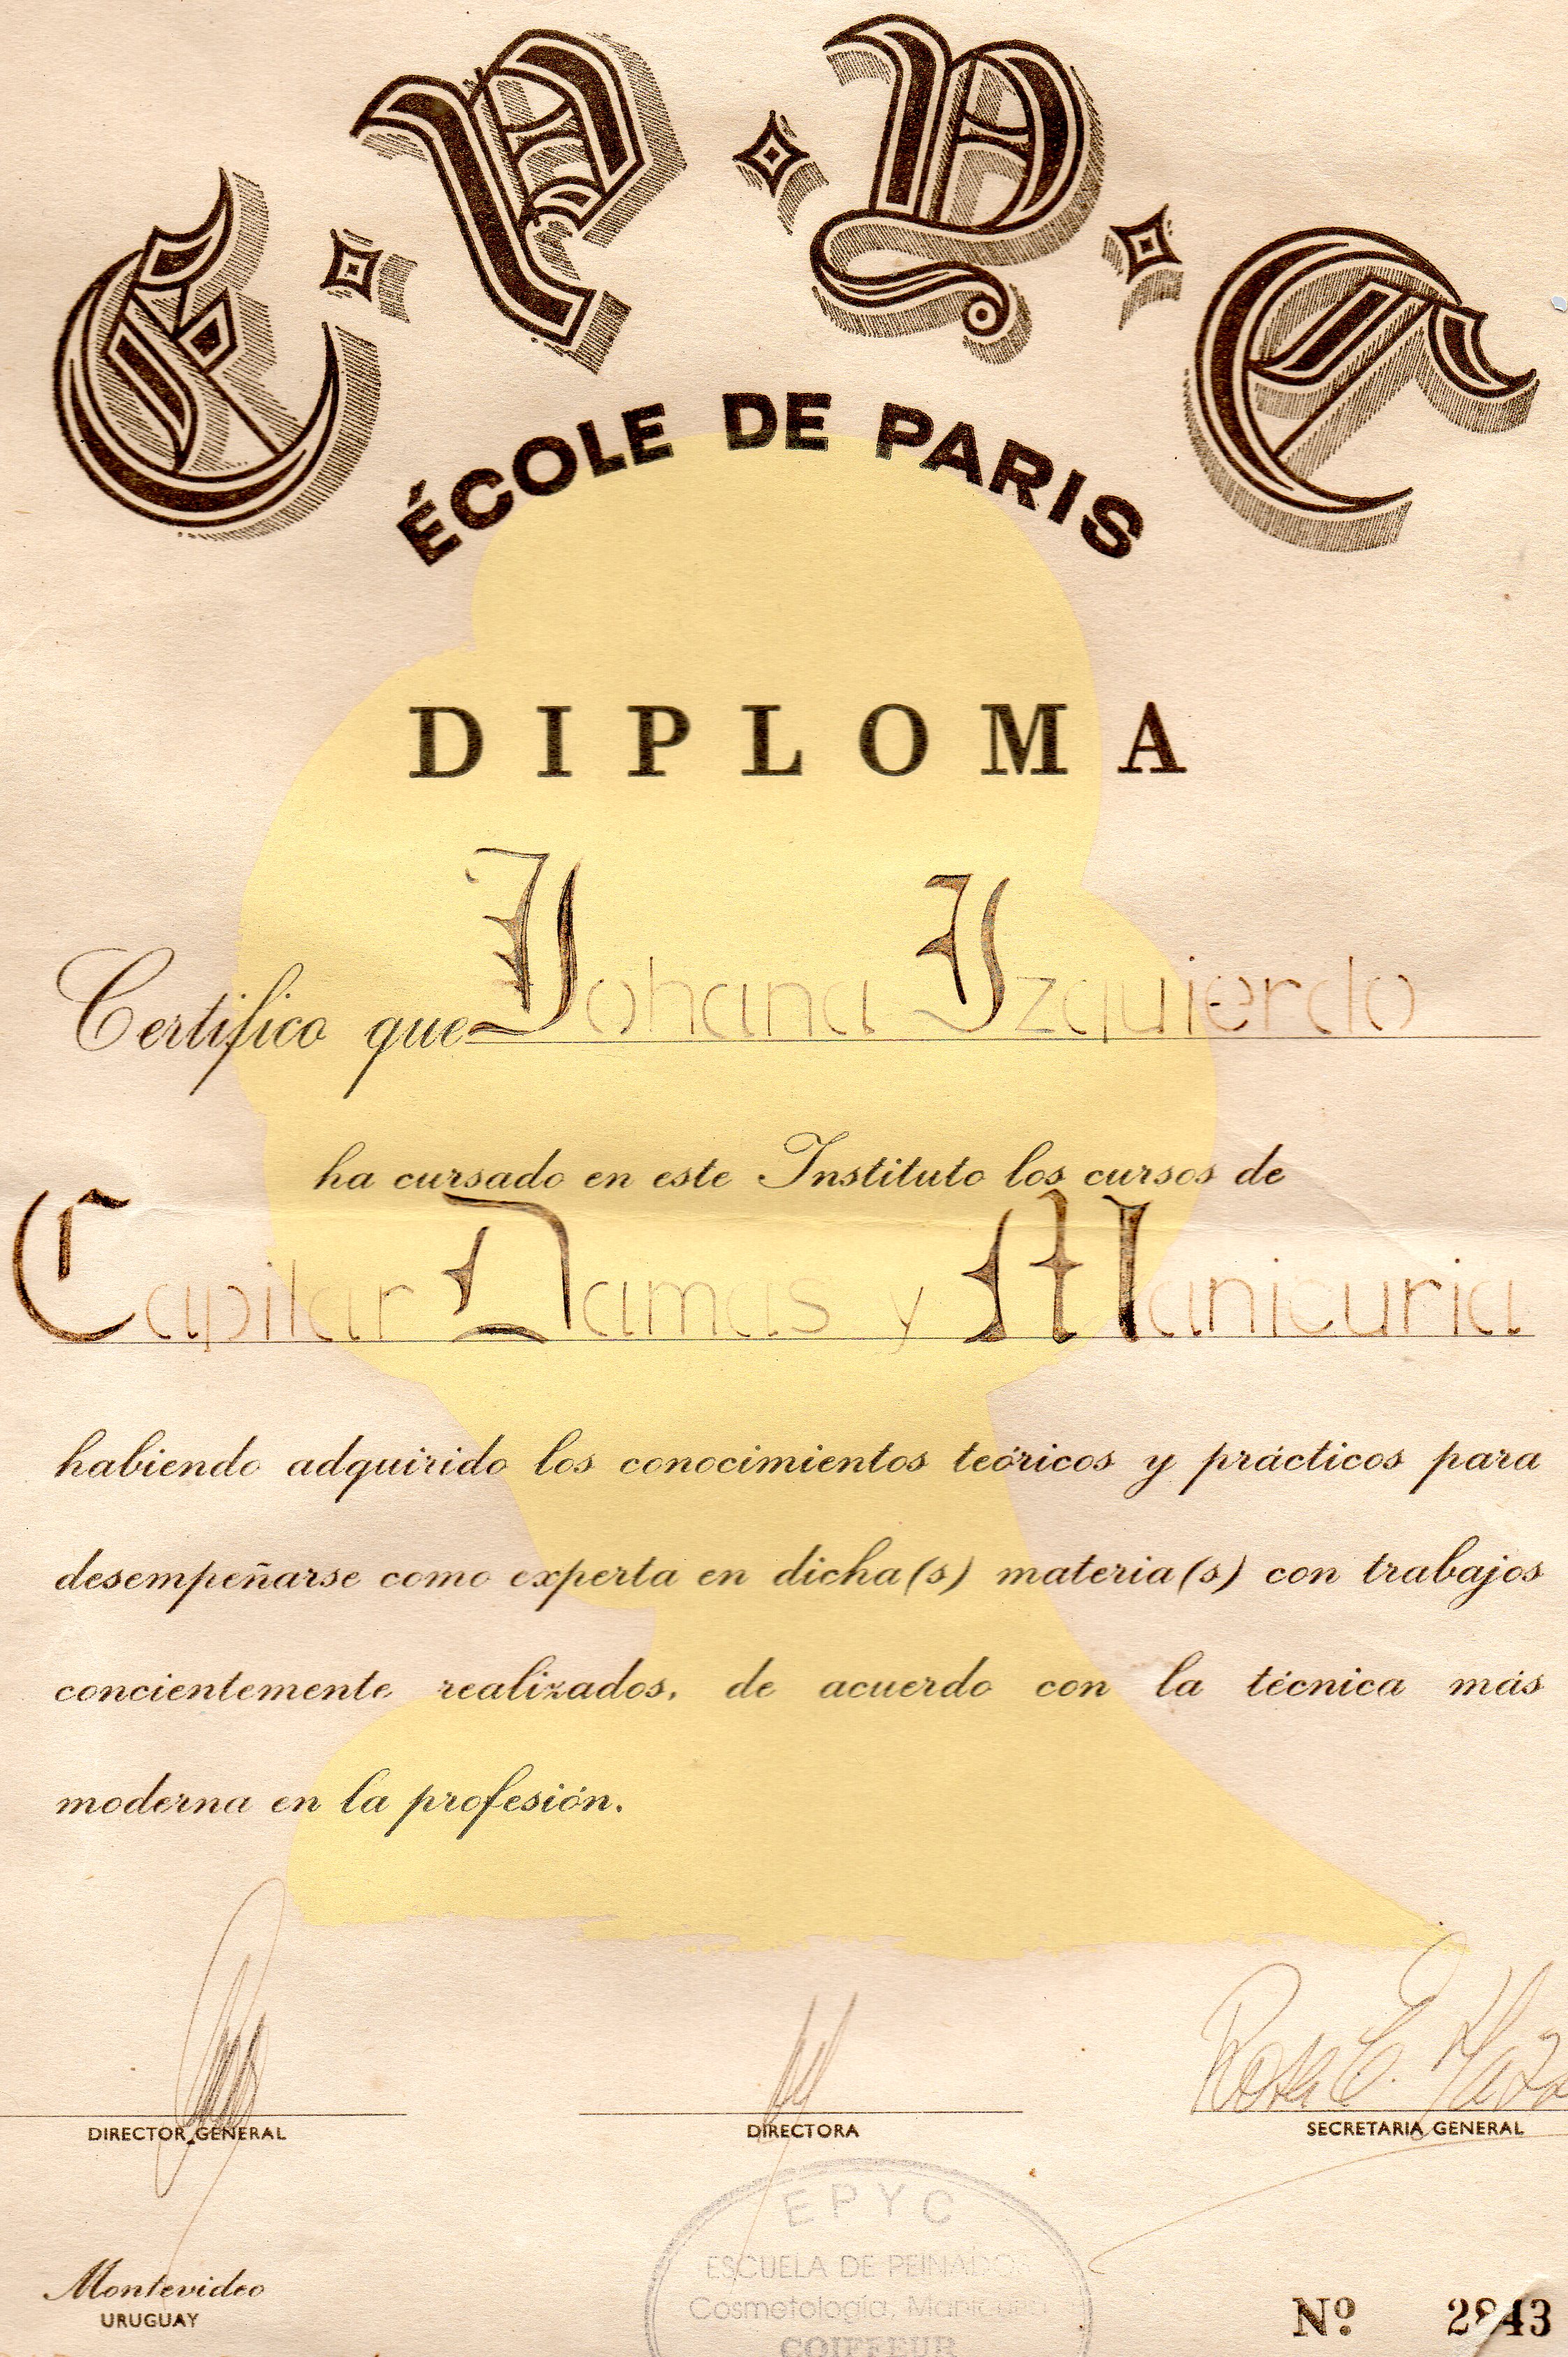 E·P·Y·C
ÉCOLE DE PARIS
DIPLOMA
Certifico que Johana Izquierdo
ha cursado en este Instituto los cursos de
Capilar Damas y Manicuria
habiendo adquirido los conocimientos teóricos y prácticos para
desempeñarse como experta en dicha(s) materia(s) con trabajos
concientemente realizados, de acuerdo con la técnica más
moderna en la profesión.
Rosa E.
DIRECTOR GENERAL DIRECTORA SECRETARIA GENERAL
EPYC
ESCUELA DE PEINADOS
Cosmetología, Manicura
COIFFEUR
Montevideo
URUGUAY
Nº 2843